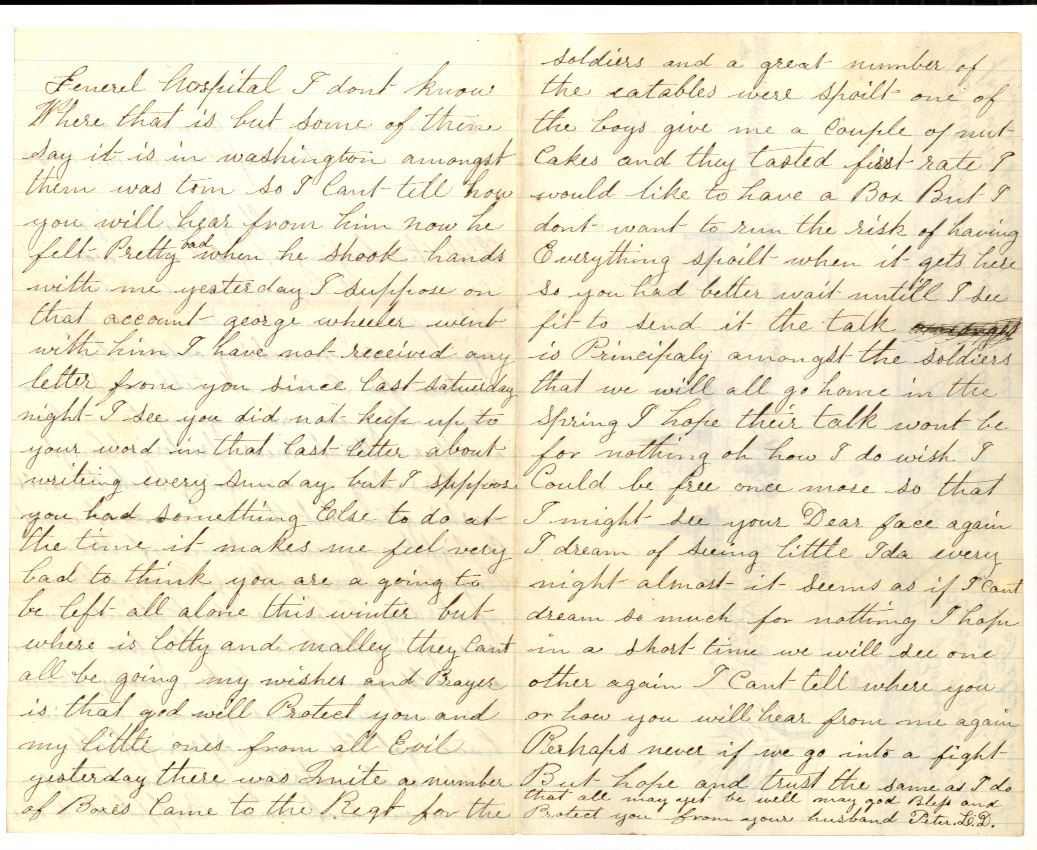 Generel Hospital I dont know
Where that is but some of them
say it is in washington amongst
them was tom so I Cant tell how
you will hear from him now he
felt Pretty bad when he shook hands
with me yesterday I suppose on
that account george wheeler went
with him I have not received any
letter from you since last saturday
night I see you did not keep up to
your word in that last letter about
writing every sunday but I sppose
you had something Else to do at
the time it makes me feel very
bad to think you are a going to
be left all alone this winter but
where is Lotty and malley they Cant
all be going my wishes and Prayer
is that god will Protect you and
my little ones from all Evil
yesterday there was Quite a number
of Boxes Came to the Regt for the
soldiers and a great number of
the eatables were spoilt one of
the boys give me a Couple of nut
Cakes and they tasted first rate I
would like to have a Box But I
dont want to run the risk of having
Everything spoilt when it gets here
so you had better wait untill I see
fit to send it the talk
is Principaly amongst the soldiers
that we will all go home in the
spring I hope their talk wont be
for nothing oh how I do wish I
Could be free once more so that
I might see your Dear face again
I dream of seeing little Ida every
night almost it seems as if I Cant
dream so much for nothing I hope
in a short time we will see one
other again I Cant tell where you
or how you will hear from me again
Perhaps never if we go into a fight
But hope and trust the same as I do
that all may yet be well may god Bless and
Protect you from your husband Peter. L.D.